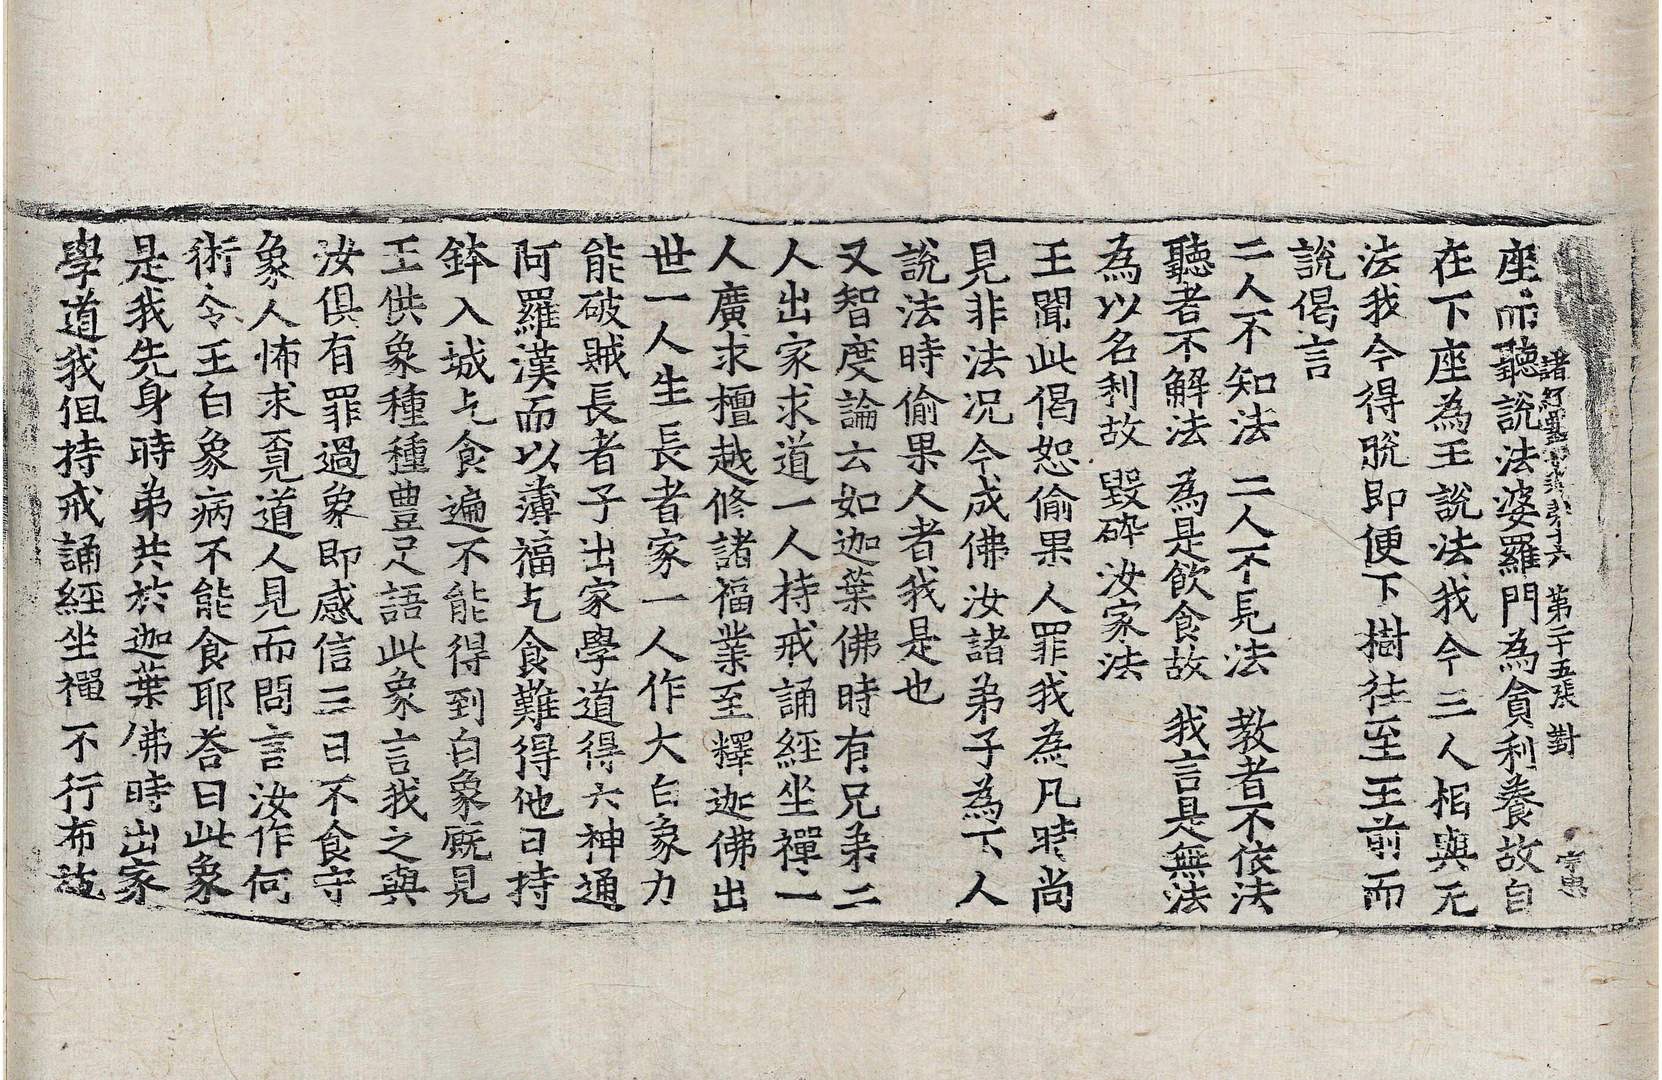 座而聽說法婆羅門為貪利養故自
諸經要集卷第十六 第二十五張 對
在下座為王說法我今三人相與无
法我今得脫即便下樹往至王前而
說偈言
二人不知法 二人不見法 教者不依法
聽者不解法 為是飲食故 我言是無法
為以名利故 毀碎汝家法
王聞此偈恕偷果人罪我為凡時尚
見非法况今成佛汝諸弟子為下人
說法時偷果人者我是也
又智度論云如迦葉佛時有兄弟二
人出家求道一人持戒誦經坐禪一
人廣求檀越修諸福業至釋迦佛出
世一人生長者家一人作大白象力
能破賊長者子出家學道得六神通
阿羅漢而以薄福乞食難得他日持
鉢入城乞食遍不能得到白象廐見
王供象種種豊足語此象言我之與
汝俱有罪過象即感信三日不食守
象人怖求覓道人見而問言汝作何
術令王白象病不能食耶荅曰此象
是我先身時弟共於迦葉佛時出家
學道我但持戒誦經坐禪不行布施